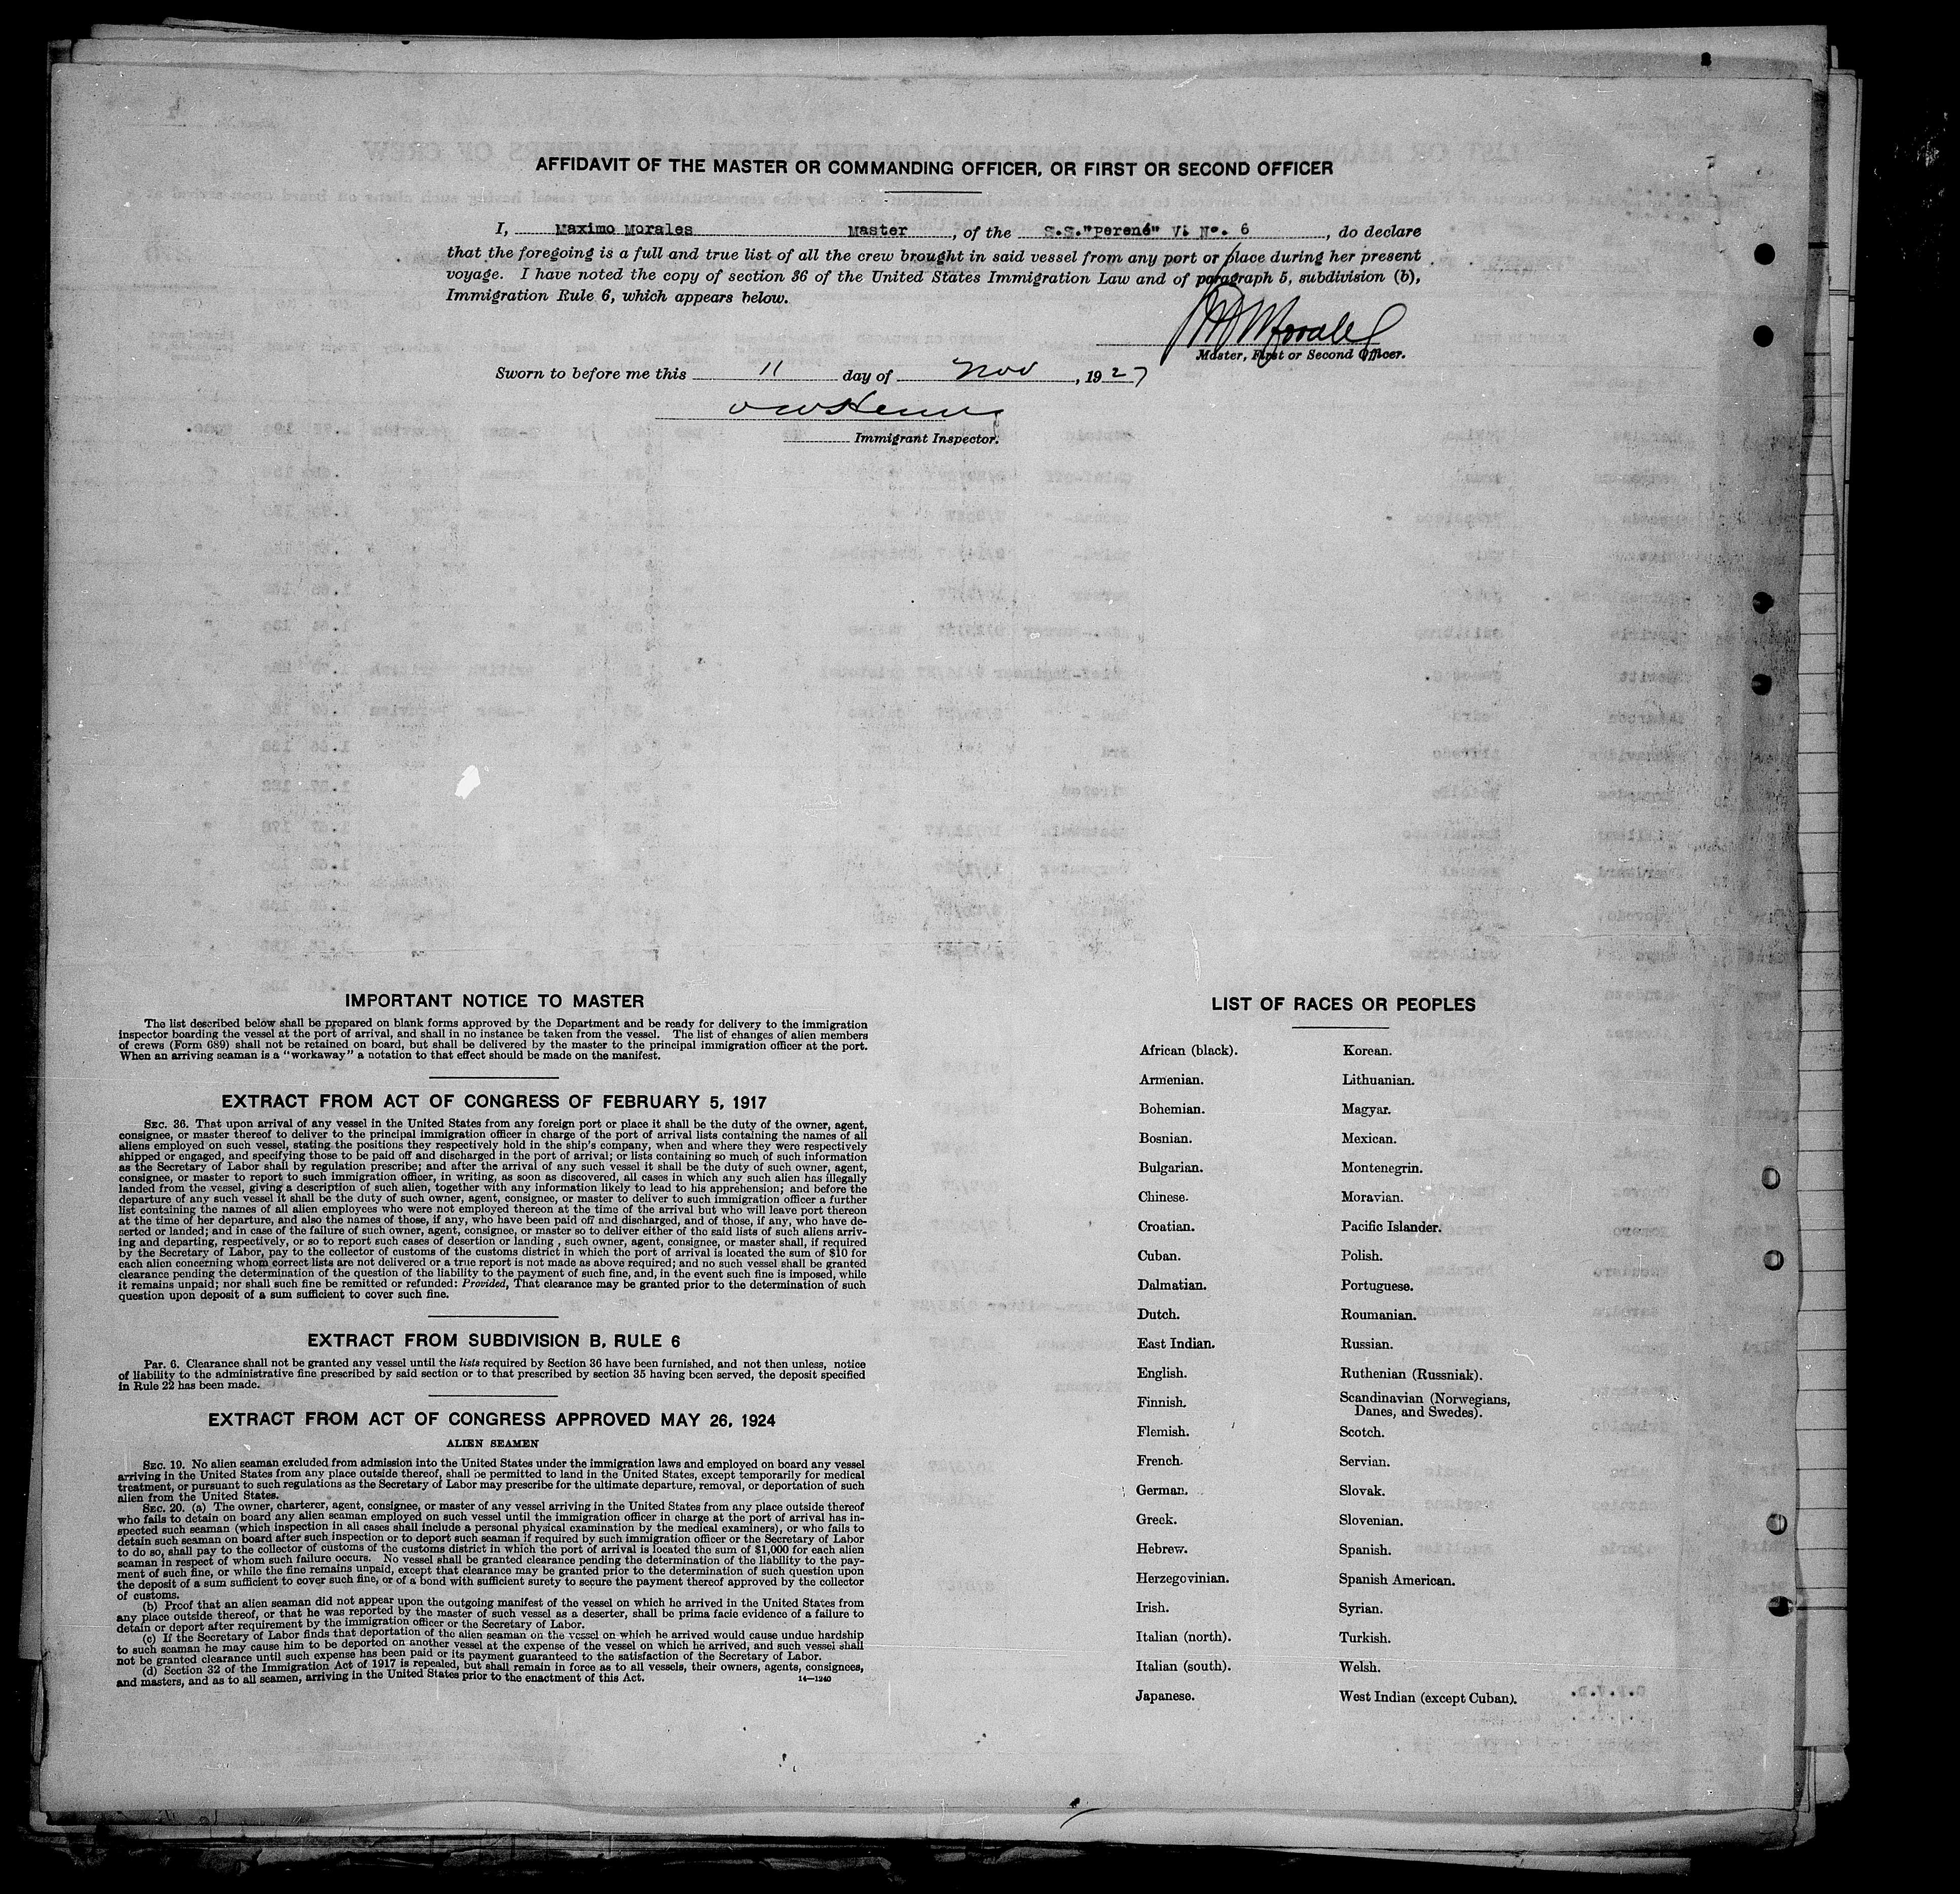 AFFIDAVIT OF THE MASTER OR COMMANDING OFFICER, OR FIRST OR SECOND OFFICER
I, Maximo Morales Master, of the S.S."Perené" V. No. 6, do declare
that the foregoing is a full and true list of all the crew brought in said vessel from any port or place during her present
voyage. I have noted the copy of section 36 of the United States Immigration Law and of paragraph 5, subdivision (b),
Immigration Rule 6, which appears below.
Morales
Master, First or Second Officer.
Sworn to before me this 11 day of Nov, 1927
Immigrant Inspector.
IMPORTANT NOTICE TO MASTER
The list described below shall be prepared on blank forms approved by the Department and be ready for delivery to the immigration
inspector boarding the vessel at the port of arrival, and shall in no instance be taken from the vessel. The list of changes of alien members
of crews (Form 689) shall not be retained on board, but shall be delivered by the master to the principal immigration officer at the port.
When an arriving seaman is a "workaway" a notation to that effect should be made on the manifest.
EXTRACT FROM ACT OF CONGRESS OF FEBRUARY 5, 1917
SEC. 36. That upon arrival of any vessel in the United States from any foreign port or place it shall be the duty of the owner, agent,
consignee, or master thereof to deliver to the principal immigration officer in charge of the port of arrival lists containing the names of all
aliens employed on such vessel, stating the positions they respectively hold in the ship's company, when and where they were respectively
shipped or engaged, and specifying those to be paid off and discharged in the port of arrival; or lists containing so much of such information
as the Secretary of Labor shall by regulation prescribe; and after the arrival of any such vessel it shall be the duty of such owner, agent,
consignee, or master to report to such immigration officer, in writing, as soon as discovered, all cases in which any such alien has illegally
landed from the vessel, giving a description of such alien, together with any information likely to lead to his apprehension; and before the
departure of any such vessel it shall be the duty of such owner, agent, consignee, or master to deliver to such immigration officer a further
list containing the names of all alien employees who were not employed thereon at the time of the arrival but who will leave port thereon
at the time of her departure, and also the names of those, if any, who have been paid off and discharged, and of those, if any, who have de-
serted or landed; and in case of the failure of such owner, agent, consignee, or master so to deliver either of the said lists of such aliens arriv-
ing and departing, respectively, or so to report such cases of desertion or landing , such owner, agent, consignee, or master shall, if required
by the Secretary of Labor, pay to the collector of customs of the customs district in which the port of arrival is located the sum of $10 for
each alien concerning whom correct lists are not delivered or a true report is not made as above required; and no such vessel shall be granted
clearance pending the determination of the question of the liability to the payment of such fine, and, in the event such fine is imposed, while
it remains unpaid; nor shall such fine be remitted or refunded: Provided, That clearance may be granted prior to the determination of such
question upon deposit of a sum sufficient to cover such fine.
EXTRACT FROM SUBDIVISION B, RULE 6
Par. 6. Clearance shall not be granted any vessel until the lists required by Section 36 have been furnished, and not then unless, notice
of liability to the administrative fine prescribed by said section or to that prescribed by section 35 having been served, the deposit specified
in Rule 22 has been made.
EXTRACT FROM ACT OF CONGRESS APPROVED MAY 26, 1924
ALIEN SEAMEN
SEC. 19. No alien seaman excluded from admission into the United States under the immigration laws and employed on board any vessel
arriving in the United States from any place outside thereof, shall be permitted to land in the United States, except temporarily for medical
treatment, or pursuant to such regulations as the Secretary of Labor may prescribe for the ultimate departure, removal, or deportation of such
alien from the United States.
SEC. 20. (a) The owner, charterer, agent, consignee, or master of any vessel arriving in the United States from any place outside thereof
who fails to detain on board any alien seaman employed on such vessel until the immigration officer in charge at the port of arrival has in-
spected such seaman (which inspection in all cases shall include a personal physical examination by the medical examiners), or who fails to
detain such seaman on board after such inspection or to deport such seaman if required by such immigration officer or the Secretary of Labor
to do so, shall pay to the collector of customs of the customs district in which the port of arrival is located the sum of $1,000 for each alien
seaman in respect of whom such failure occurs. No vessel shall be granted clearance pending the determination of the liability to the pay-
ment of such fine, or while the fine remains unpaid, except that clearance may be granted prior to the determination of such question upon
the deposit of a sum sufficient to cover such fine, or of a bond with sufficient surety to secure the payment thereof approved by the collector
of customs.
(b) Proof that an alien seaman did not appear upon the outgoing manifest of the vessel on which he arrived in the United States from
any place outside thereof, or that he was reported by the master of such vessel as a deserter, shall be prima facie evidence of a failure to
detain or deport after requirement by the immigration officer or the Secretary of Labor.
(c) If the Secretary of Labor finds that deportation of the alien seaman on the vessel on which he arrived would cause undue hardship
to such seaman he may cause him to be deported on another vessel at the expense of the vessel on which he arrived, and such vessel shall
not be granted clearance until such expense has been paid or its payment guaranteed to the satisfaction of the Secretary of Labor.
(d) Section 32 of the Immigration Act of 1917 is repealed, but shall remain in force as to all vessels, their owners, agents, consignees,
and masters, and as to all seamen, arriving in the United States prior to the enactment of this Act. 14—1240
LIST OF RACES OR PEOPLES
African (black).
Armenian.
Bohemian.
Bosnian.
Bulgarian.
Chinese.
Croatian.
Cuban.
Dalmatian.
Dutch.
East Indian.
English.
Finnish.
Flemish.
French.
German.
Greek.
Hebrew.
Herzegovinian.
Irish.
Italian (north).
Italian (south).
Japanese.
Korean.
Lithuanian.
Magyar.
Mexican.
Montenegrin.
Moravian.
Pacific Islander.
Polish.
Portuguese.
Roumanian.
Russian.
Ruthenian (Russniak).
Scandinavian (Norwegians,
Danes, and Swedes).
Scotch.
Servian.
Slovak.
Slovenian.
Spanish.
Spanish American.
Syrian.
Turkish.
Welsh.
West Indian (except Cuban).